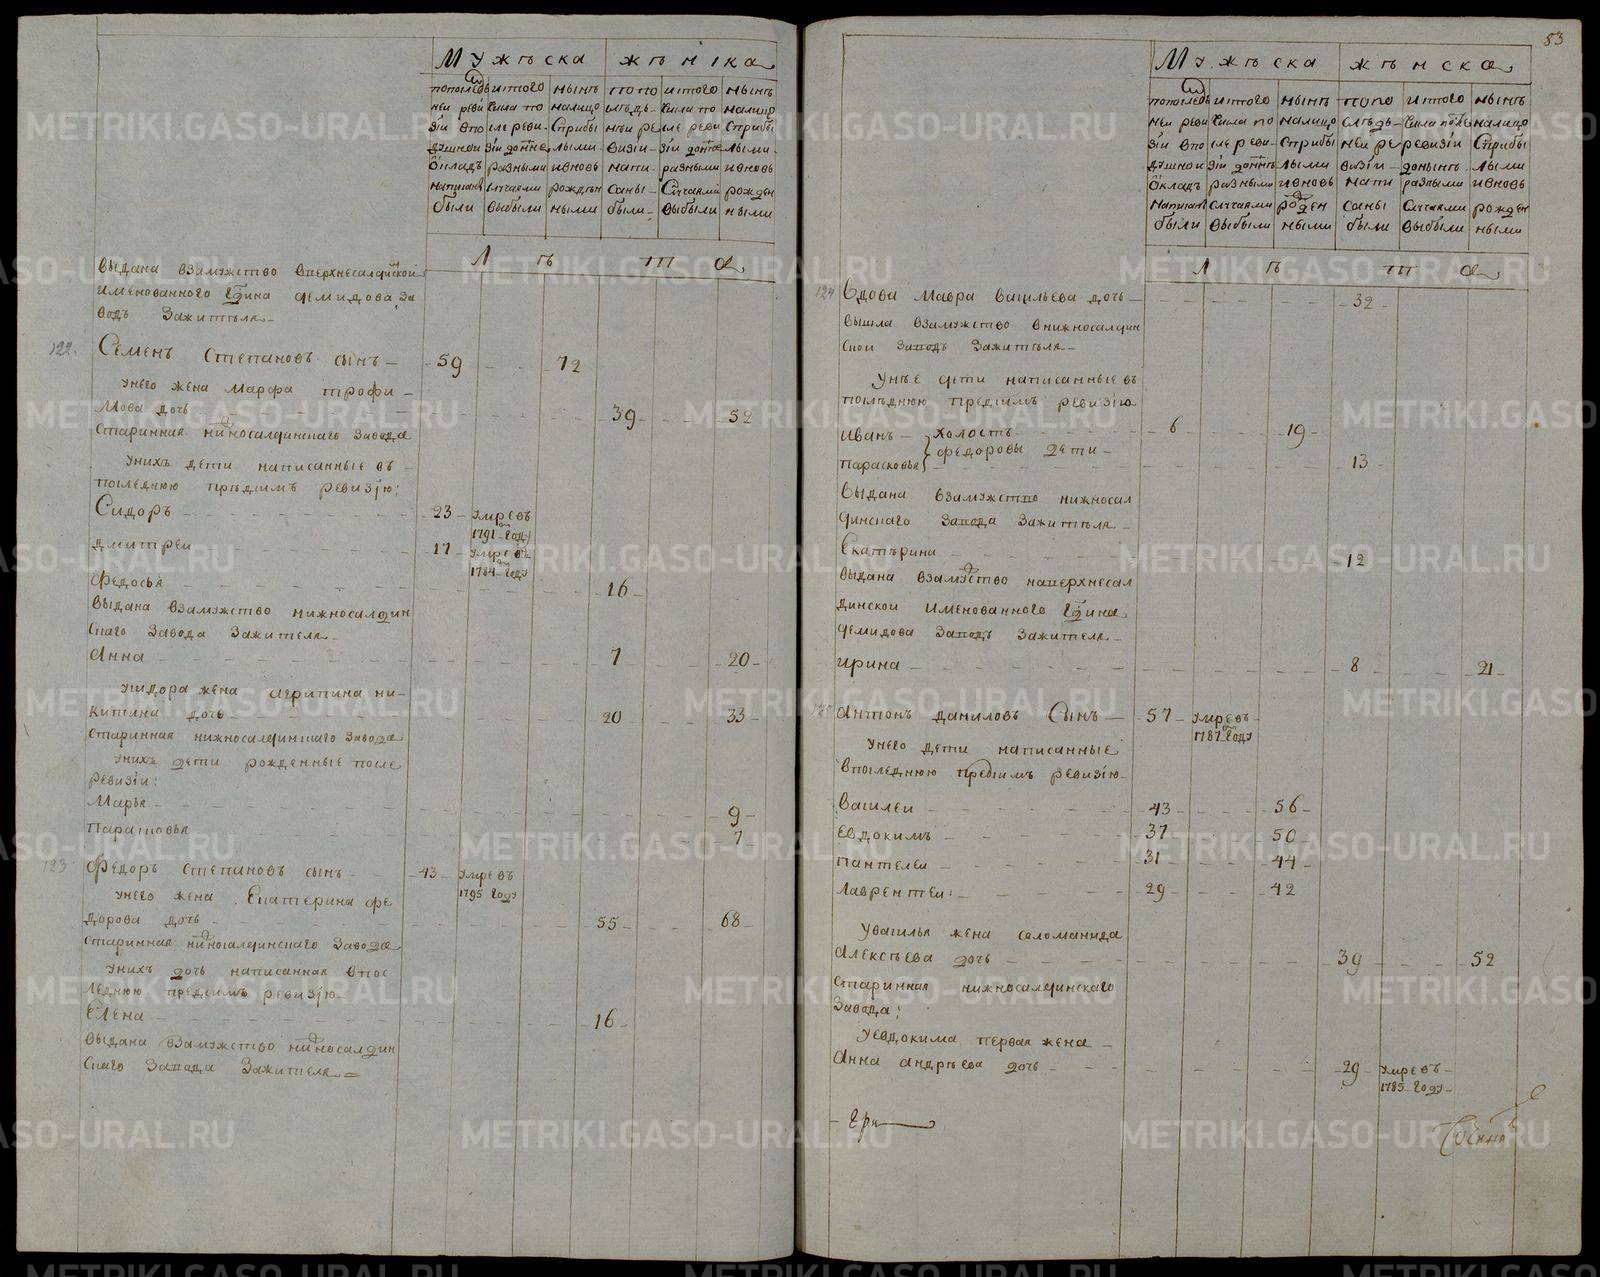 Мужеска женска
попоследней ревизiи вподушной окладъ написаны были
изтого числа после ревизiи до ныне разными случаями выбыли
ныне налицо сприбылыми и вновь рожденными
попоследней ревизiи написаны были
изтого числа после ревизiи до ныне разными случаями выбыли
ныне налицо сприбылыми и вновь рожденными
Лета
выдана взамужство вверхнесалдинской
именованного Гдина демидова за
водъ Зажителя
122. Семенъ степановъ сынъ 59 72
унего жена марфа трофи
мова дочь 39 52
старинная нижносалдинскаго завода
унихъ дети написанные въ
последнюю предсимъ ревизiю:
Сидоръ 23 умре въ
1791 году
дмитреи 17 умре въ
1784 году
федосья 16
выдана взамужство нижносалдин
скаго завода зажителя
Анна 7 20
усидора жена агрипина ни
китина дочь 20 33
старинная нижносалдинскаго завода
унихъ дети рожденные после
ревизiи:
Марья 9
парасковья 7
123 федоръ степановъ сынъ 43 умре въ
1795 году
унего жена Екатерина фе
дорова дочь 55 68
старинная нижносалдинскаго завода
унихъ дочь написанная впос
леднюю предсимъ ревизiю
Елена 16
выдана взамужство нижносалдин
скаго завода зажителя
53
Мужеска женска
попоследней ревизiи вподушной окладъ написаны были
изтого числа после ревизiи до ныне разными случаями выбыли
ныне налицо сприбылыми и вновь рожденными
попоследней ревизiи написаны были
изтого числа после ревизiи до ныне разными случаями выбыли
ныне налицо сприбылыми и вновь рожденными
Лета
124 Вдова мавра васильева дочь 32
вышла взамужство внижносалдин
скои заводъ зажителя
унее дети написанные въ
последнюю предсимъ ревизiю
иванъ холостъ 6 19
федоровы дети
парасковья 13
выдана взамужство нижносал
динскаго завода зажителя
Екатерина 12
выдана взамужство наверхнесал
динскои именованного Гдина
демидова заводъ зажителя
ирина 8 21
125 Антонъ даниловъ сынъ 57 умре въ
1787 году
унего дети написанные
впоследнюю предсимъ ревизiю
василеи 43 56
евдокимъ 37 50
пантелеи 31 44
лаврентеи: 29 42
увасилья жена соломанида
алексеева дочь 39 52
старинная нижносалдинскаго
завода;
уевдокима первая жена
анна андреева дочь 29 умре въ
1785 году
METRIKI.GASO-URAL.RU